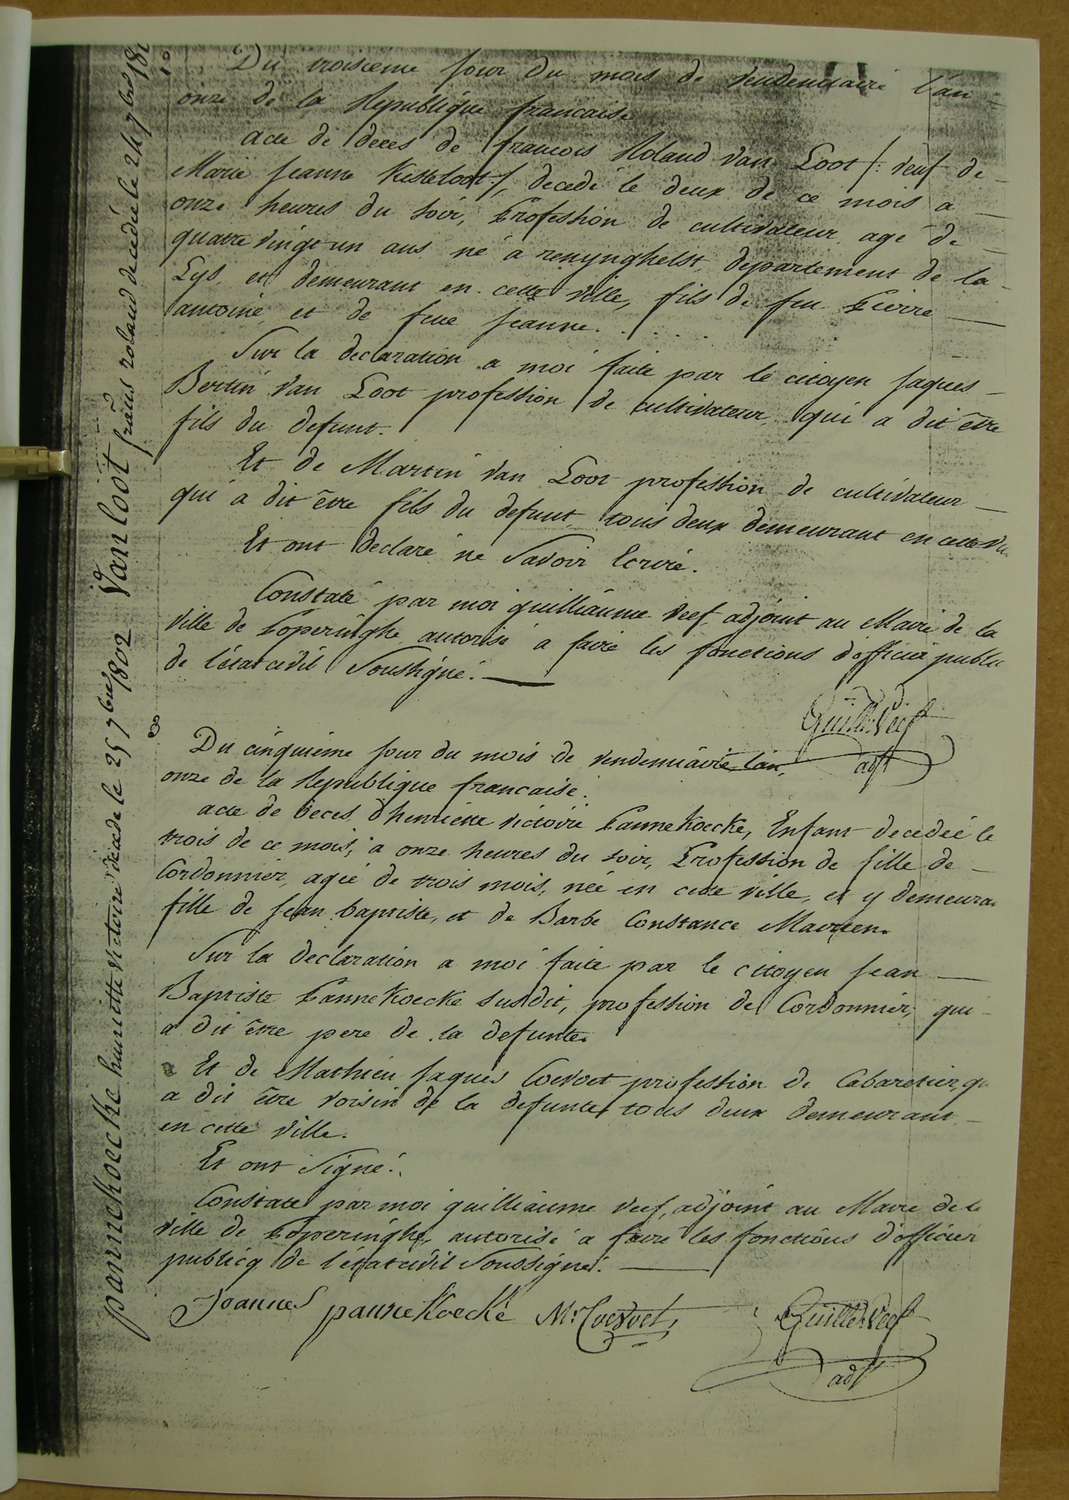 Du troisieme jour du mois de vendemiaire l'an
onze de la Republique francaise
acte de deces de francois Roland van Loot /: veuf de
Marie jeanne Kesteloot :/, decedé le deux de ce mois a
onze heures du soir, Profession de cultivateur agé de
quatre vingt un ans né a renynghelst, departement de la
Lys, et demeurant en cette ville, fils de feu Pierre
antoine, et de feue jeanne. . . . .
Sur la declaration a moi faite par le citoyen jaques
Bertin van Loot profession de cultivateur, qui a dit être
fils du defunt.
Et de Martin van Loot profession de cultivateur
qui a dit être fils du defunt, tous deux demeurant en cette
Et ont declaré ne savoir Ecrire.
Constaté par moi guilliaume veef adjoint au Maire de la
ville de Poperinghe autorisé a faire les fonctions d'officier public
de l'état civil Soussigné.
Guill: Veef
adjt
8
Du cinquieme jour du mois de vendemiaire l'an
onze de la Republique francaise.
acte de deces d'henriette victoire Pannekoecke, Enfant decedeé le
trois de ce mois, a onze heures du soir, Profession de fille de
Cordonnier, ageé de trois mois, neé en cette ville, et y demeurant
fille de jean baptiste, et de Barbe Constance Maerten.
Sur la declaration a moi faite par le citoyen jean
Baptiste Pannekoecke susdit, profession de Cordonnier, qui
a dit être pere de la defunte.
Et de Mathieu jaques Coevoet profession de Cabaretier, qui
a dit être voisin de la defunte tous deux demeurant
en cette ville.
Et ont signé.
Constaté par moi guilliaume veef, adjoint au Maire de la
ville de Poperinghe, autorisé a faire les fonctions d'officier
publicq de l'état civil Soussigné.
Joannes pannekoecke Mr Coevoet
Guill: Veef
adjt
Van loot francus roland decedée le 24 7bre 180
pannekoecke henriette victoire décédé le 25 7bre 1802